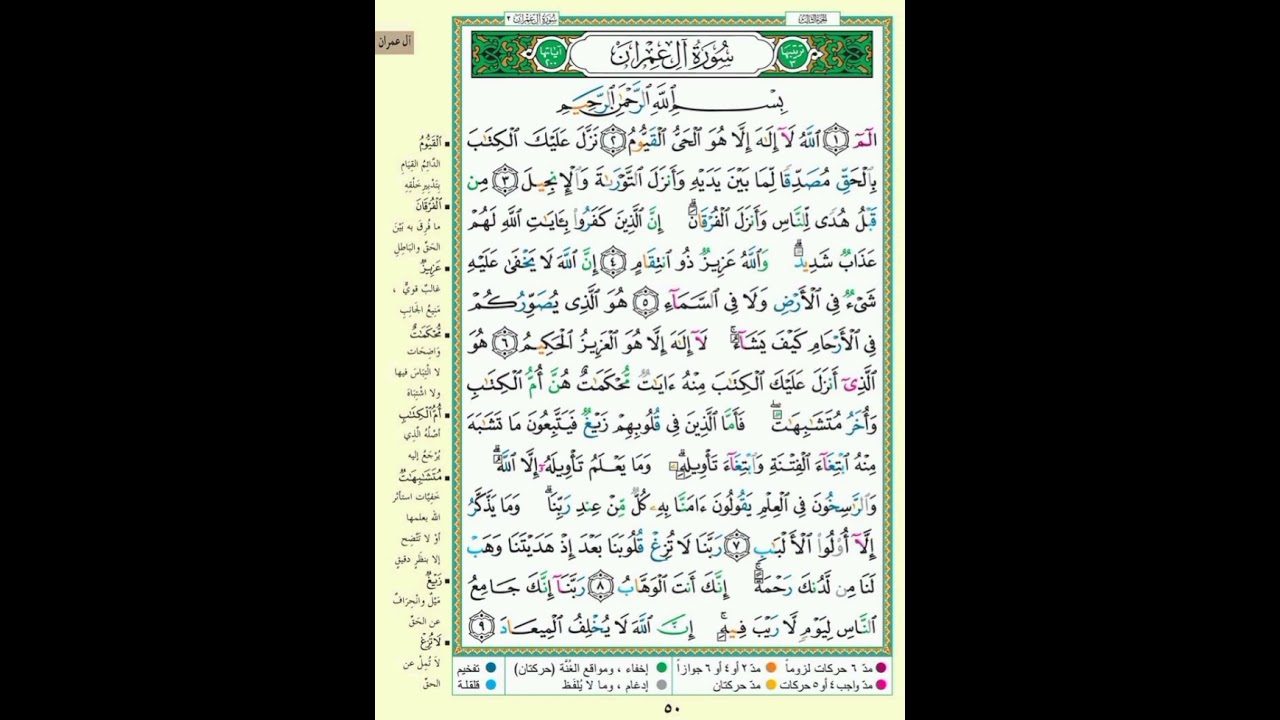 سُورَةُ آلِ عِمْرَان ٣
الجزء الثالث
آل عمران
آياتها ٢٠٠
سُورَةُ آلِ عِمْرَان
ترتيبها ٣
بِسْمِ اللَّهِ الرَّحْمَٰنِ الرَّحِيمِ
الٓمٓ ١ اللَّهُ لَآ إِلَٰهَ إِلَّا هُوَ الْحَيُّ الْقَيُّومُ ٢ نَزَّلَ عَلَيْكَ الْكِتَٰبَ
بِالْحَقِّ مُصَدِّقًا لِّمَا بَيْنَ يَدَيْهِ وَأَنزَلَ التَّوْرَىٰةَ وَالْإِنجِيلَ ٣ مِن
قَبْلُ هُدًى لِّلنَّاسِ وَأَنزَلَ الْفُرْقَانَ ۗ إِنَّ الَّذِينَ كَفَرُوا بِـَٔايَٰتِ اللَّهِ لَهُمْ
عَذَابٌ شَدِيدٌ ۗ وَاللَّهُ عَزِيزٌ ذُو انتِقَامٍ ٤ إِنَّ اللَّهَ لَا يَخْفَىٰ عَلَيْهِ
شَىْءٌ فِى الْأَرْضِ وَلَا فِى السَّمَآءِ ٥ هُوَ الَّذِى يُصَوِّرُكُمْ
فِى الْأَرْحَامِ كَيْفَ يَشَآءُ ۚ لَآ إِلَٰهَ إِلَّا هُوَ الْعَزِيزُ الْحَكِيمُ ٦ هُوَ
الَّذِىٓ أَنزَلَ عَلَيْكَ الْكِتَٰبَ مِنْهُ ءَايَٰتٌ مُّحْكَمَٰتٌ هُنَّ أُمُّ الْكِتَٰبِ
وَأُخَرُ مُتَشَٰبِهَٰتٌ ۖ فَأَمَّا الَّذِينَ فِى قُلُوبِهِمْ زَيْغٌ فَيَتَّبِعُونَ مَا تَشَٰبَهَ
مِنْهُ ابْتِغَآءَ الْفِتْنَةِ وَابْتِغَآءَ تَأْوِيلِهِۦ ۗ وَمَا يَعْلَمُ تَأْوِيلَهُۥٓ إِلَّا اللَّهُ ۗ
وَالرَّٰسِخُونَ فِى الْعِلْمِ يَقُولُونَ ءَامَنَّا بِهِۦ كُلٌّ مِّنْ عِندِ رَبِّنَا ۗ وَمَا يَذَّكَّرُ
إِلَّآ أُولُوا الْأَلْبَٰبِ ٧ رَبَّنَا لَا تُزِغْ قُلُوبَنَا بَعْدَ إِذْ هَدَيْتَنَا وَهَبْ
لَنَا مِن لَّدُنكَ رَحْمَةً ۚ إِنَّكَ أَنتَ الْوَهَّابُ ٨ رَبَّنَآ إِنَّكَ جَامِعُ
النَّاسِ لِيَوْمٍ لَّا رَيْبَ فِيهِ ۚ إِنَّ اللَّهَ لَا يُخْلِفُ الْمِيعَادَ ٩
الْقَيُّومُ
الدَّائِمُ القِيَامِ
بِتَدْبِيرِ خَلْقِهِ
الْفُرْقَانَ
ما فُرِقَ به بَيْنَ
الحَقِّ والبَاطِلِ
عَزِيزٌ
غالبٌ قويٌّ ،
مَنِيعُ الجَانِبِ
مُّحْكَمَٰتٌ
وَاضِحَات
لا الْتِبَاسَ فيها
ولا اشْتِبَاهَ
أُمُّ الْكِتَٰبِ
أصْلُهُ الَّذِي
يُرْجَعُ إليه
مُتَشَٰبِهَٰتٌ
خَفِيَّات استأثر
الله بعلمها
أوْ لا تَتَّضِح
إلا بنظَرٍ دقيقٍ
زَيْغٌ
مَيْلٌ وانْحِرَافٌ
عن الحَقِّ
لَا تُزِغْ
لَا تُمِلْ عن
الحقّ
مدّ ٦ حركات لزوماً مدّ ٢ أو ٤ أو ٦ جوازاً إخفاء ، ومواقع الغُنَّة (حركتان) تفخيم
مدّ واجب ٤ أو ٥ حركات مدّ حركتان إدغام ، وما لا يُلفَظ قلقلة
٥٠